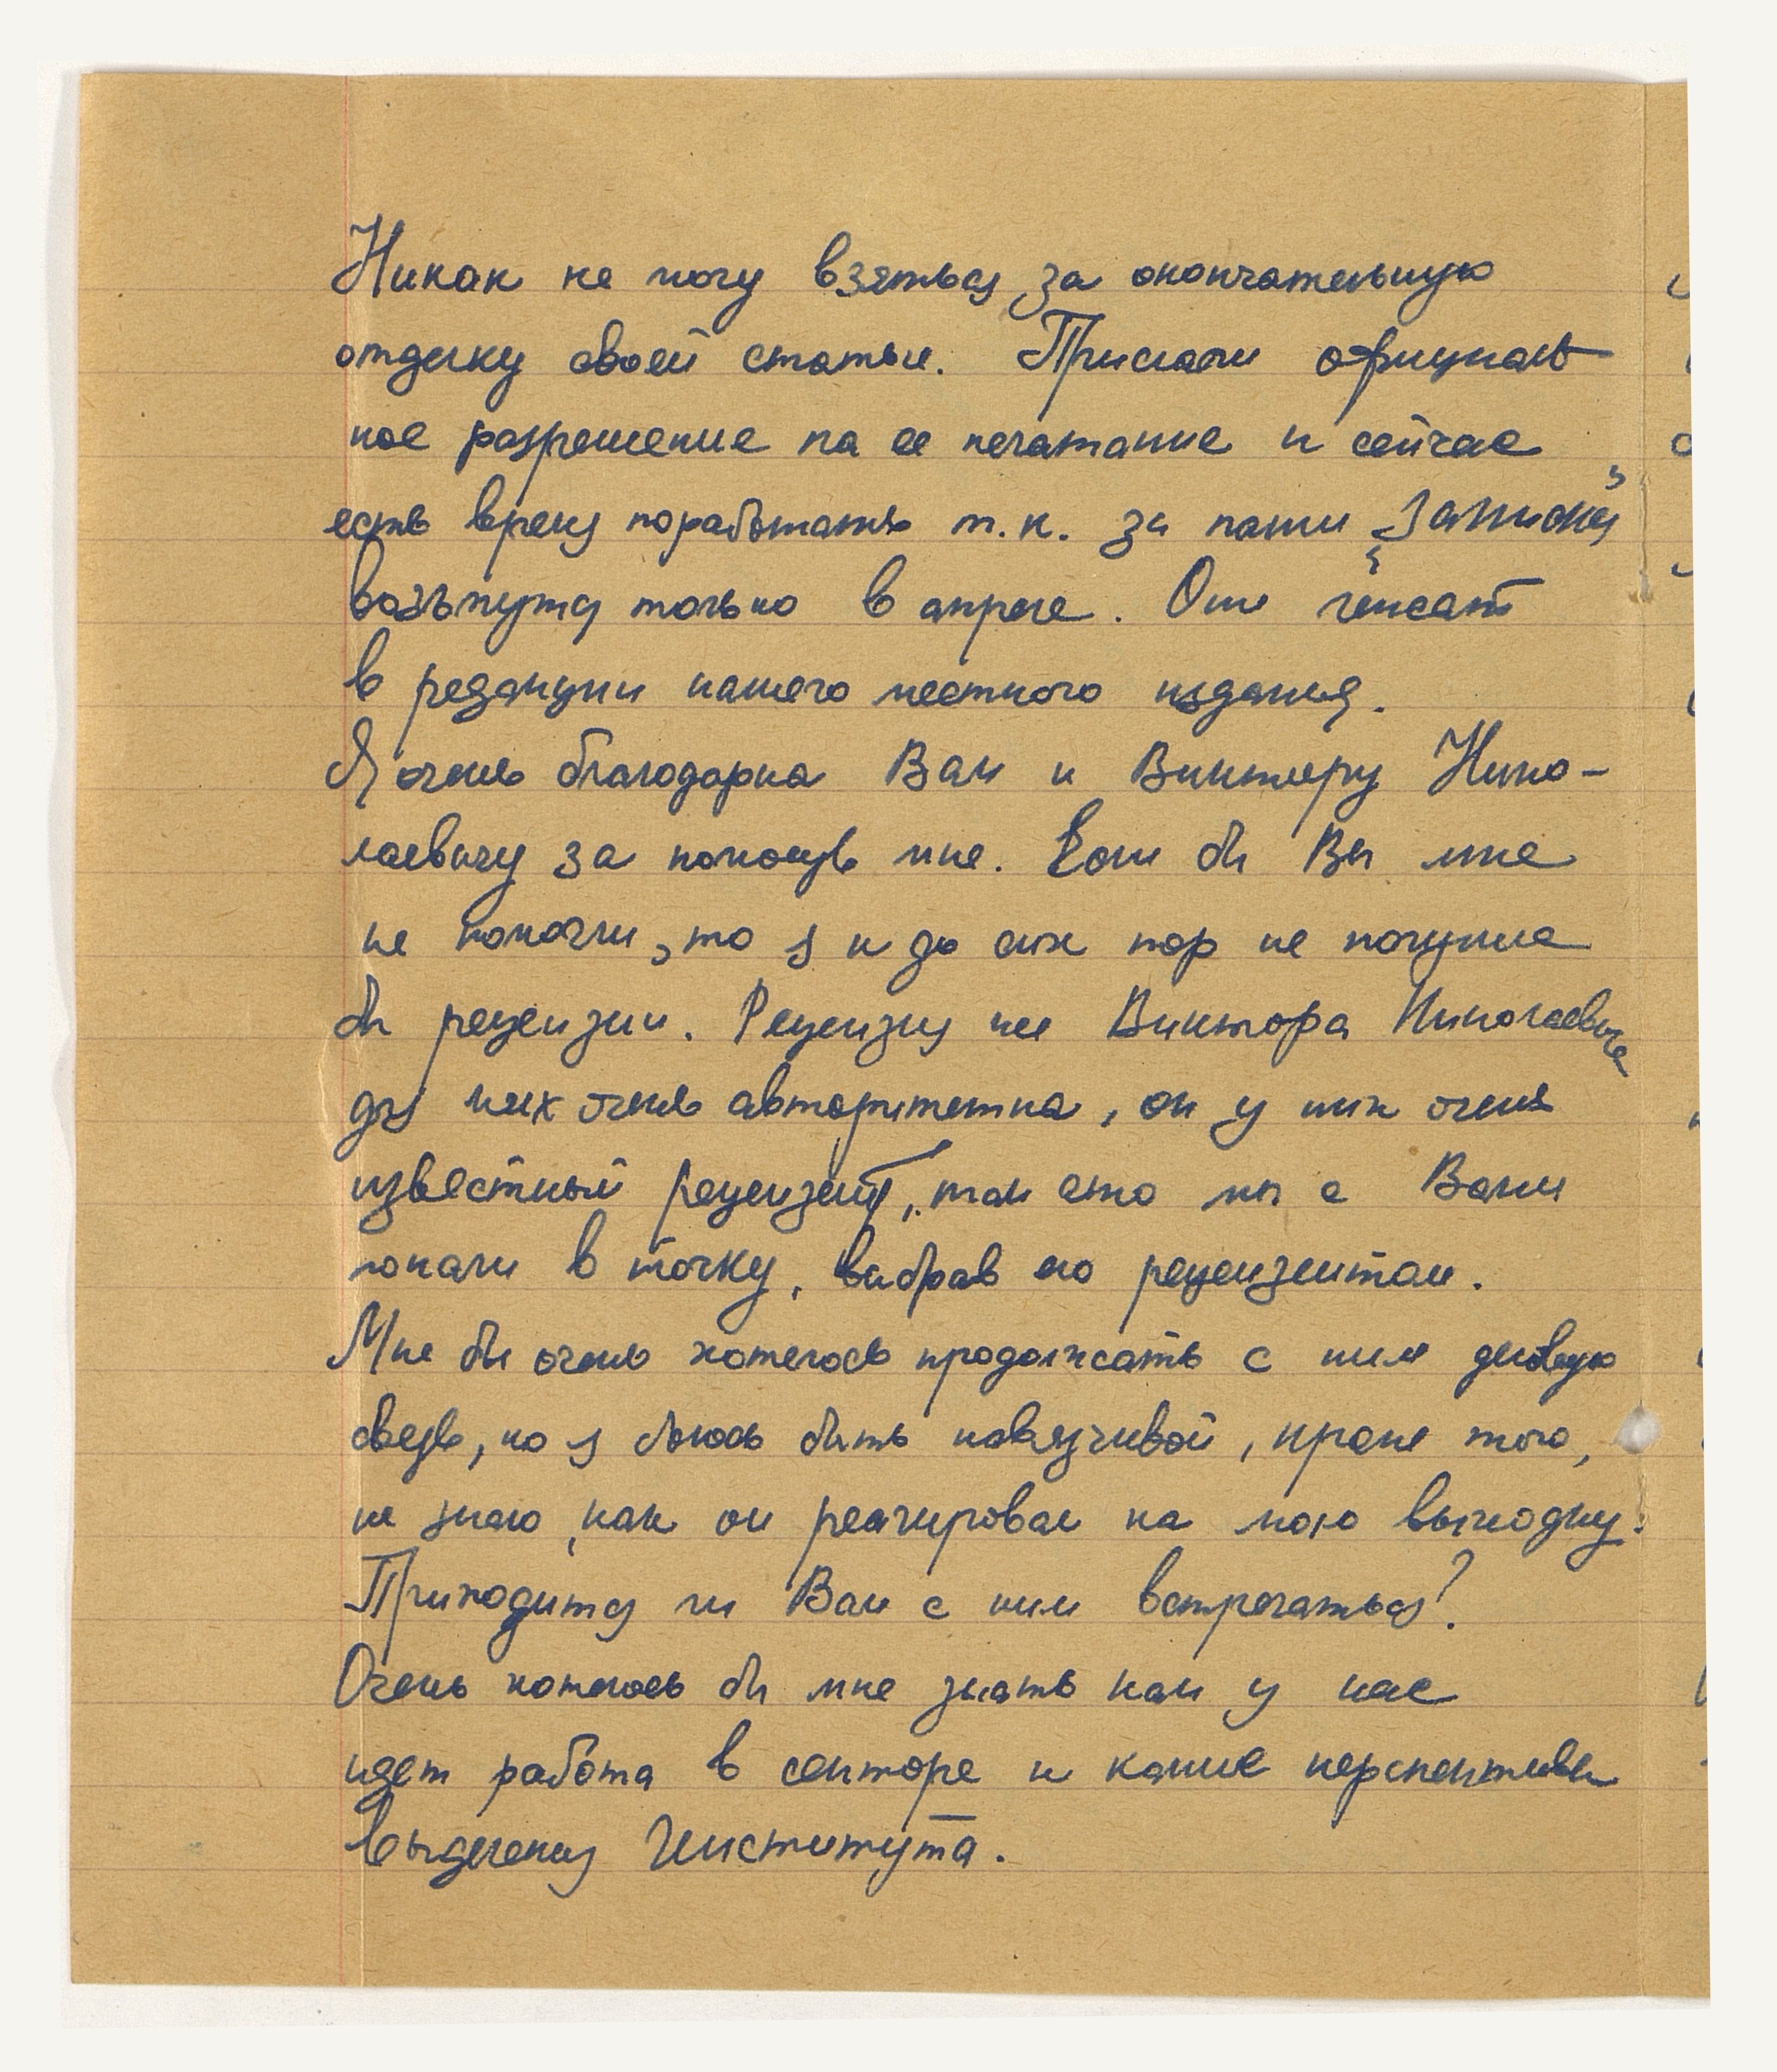 Никак не могу взяться за окончательную
отделку своей статьи. Прислали официаль
ное разрешение на ее печатание и сейчас
есть время поработать т.к. за наши „Записки”
возьмутся только в апреле. Они лежат
в редакции нашего местного издания.
Я очень благодарна Вам и Виктору Нико-
лаевичу за помощь мне. Если бы Вы мне
не помогли, то я и до сих пор не получила
бы рецензии. Рецензия же Виктора Николаевича
для них очень авторитетна, он у них очень
известный рецензент, так что мы с Вами
попали в точку, выбрав его рецензентом.
Мне бы очень хотелось продолжать с ним деловую
связь, но я боюсь быть навязчивой, кроме того,
не знаю, как он реагировал на мою выходку.
Приходится ли Вам с ним встречаться?
Очень хотелось бы мне знать как у нас
идет работа в секторе и какие перспективы
выделения Института.